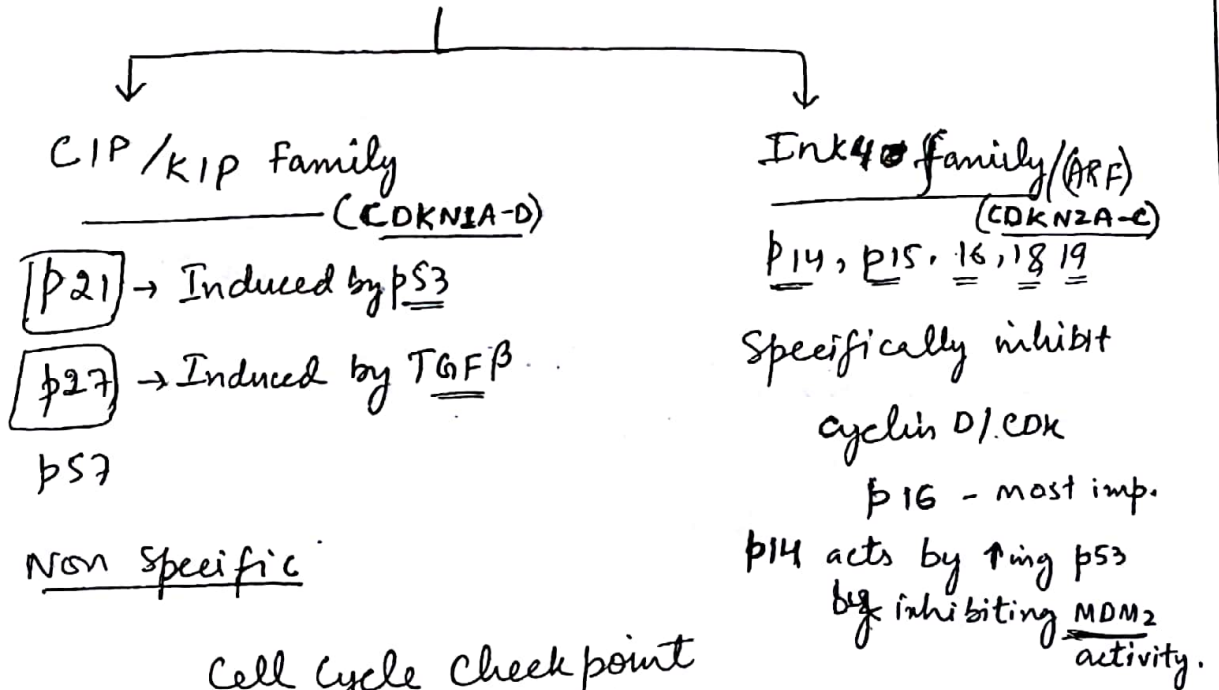 CIP/KIP Family
(CDKN1A-D)
p21 → Induced by p53
p27 → Induced by TGFβ
p57
Non Specific
Ink4 family/(ARF)
(CDKN2A-C)
p14, p15, 16, 18, 19
Specifically inhibit
cyclin D/CDK
p16 - most imp.
p14 acts by ↑ing p53
by inhibiting MDM2
activity.
Cell Cycle Checkpoint